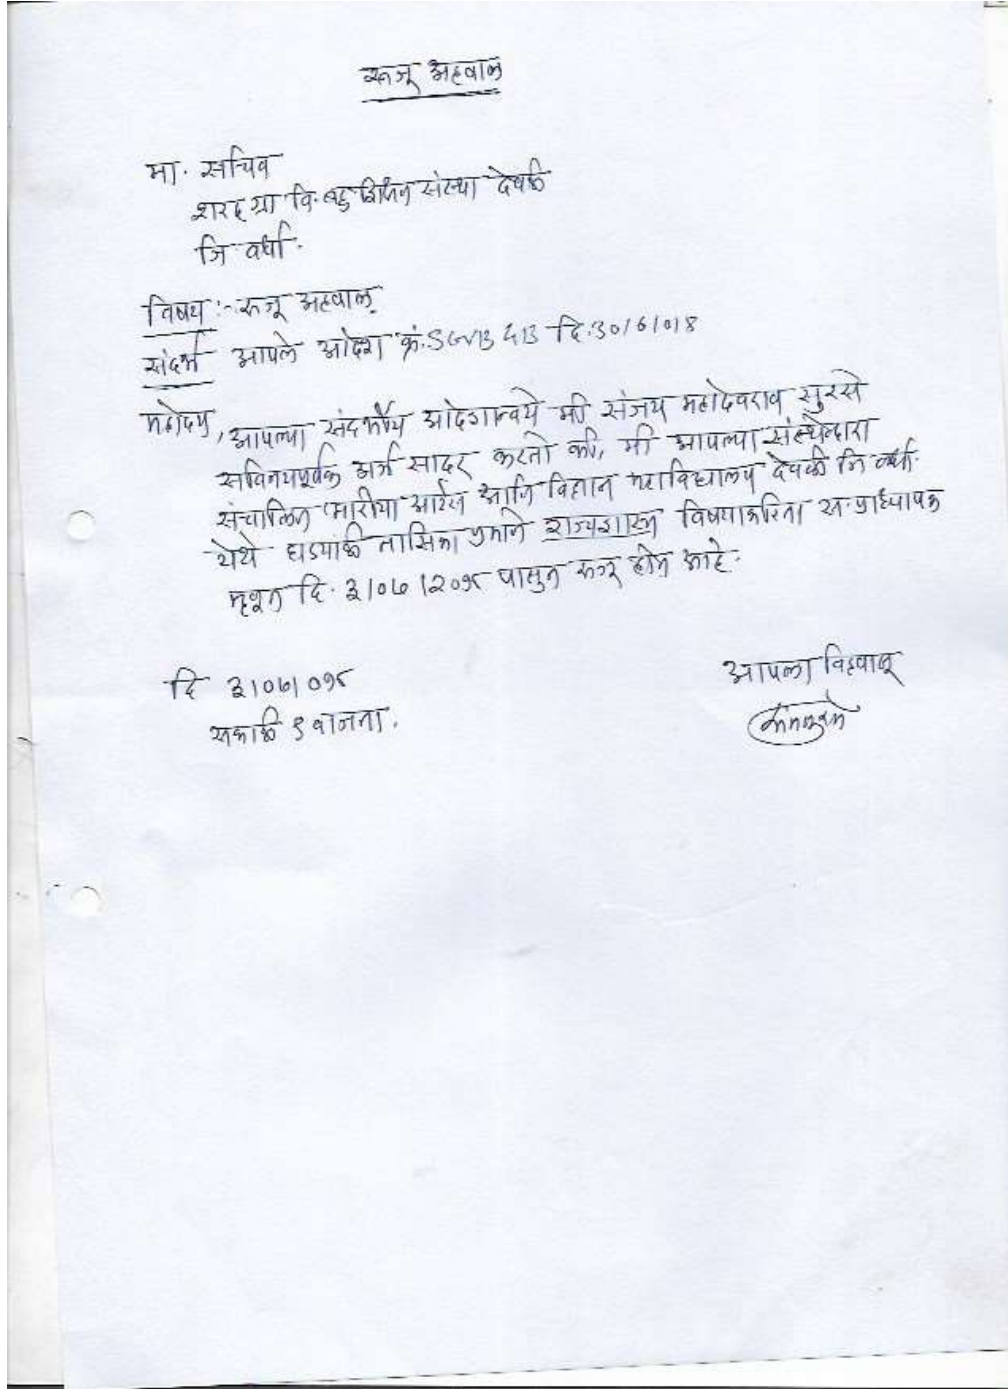 रूजू अहवाल
मा. सचिव
शरद ग्रा वि. बहु शिक्षण संस्था देवळी
जि वर्धा.
विषय :- रूजू अहवाल.
संदर्भ आपले आदेश क्रं. दि. 30/6/018
महोदय, आपल्या संदर्भीय आदेशान्वये मी संजय महादेवराव सुरसे
सविनयपूर्वक अर्ज सादर करतो की, मी आपल्या संस्थेव्दारा
संचालित आर्टस आणि विज्ञान महाविद्यालय देवळी जि वर्धा.
येथे घड्याळी तासिका प्रमाणे राज्यशास्त्र विषयाकरिता स. प्राध्यापक
म्हणून दि. ३/०७/२०१८ पासुन रूजू होत आहे.
दि ३/०७/०१८
सकाळी ९ वाजता.
आपला विश्वासू